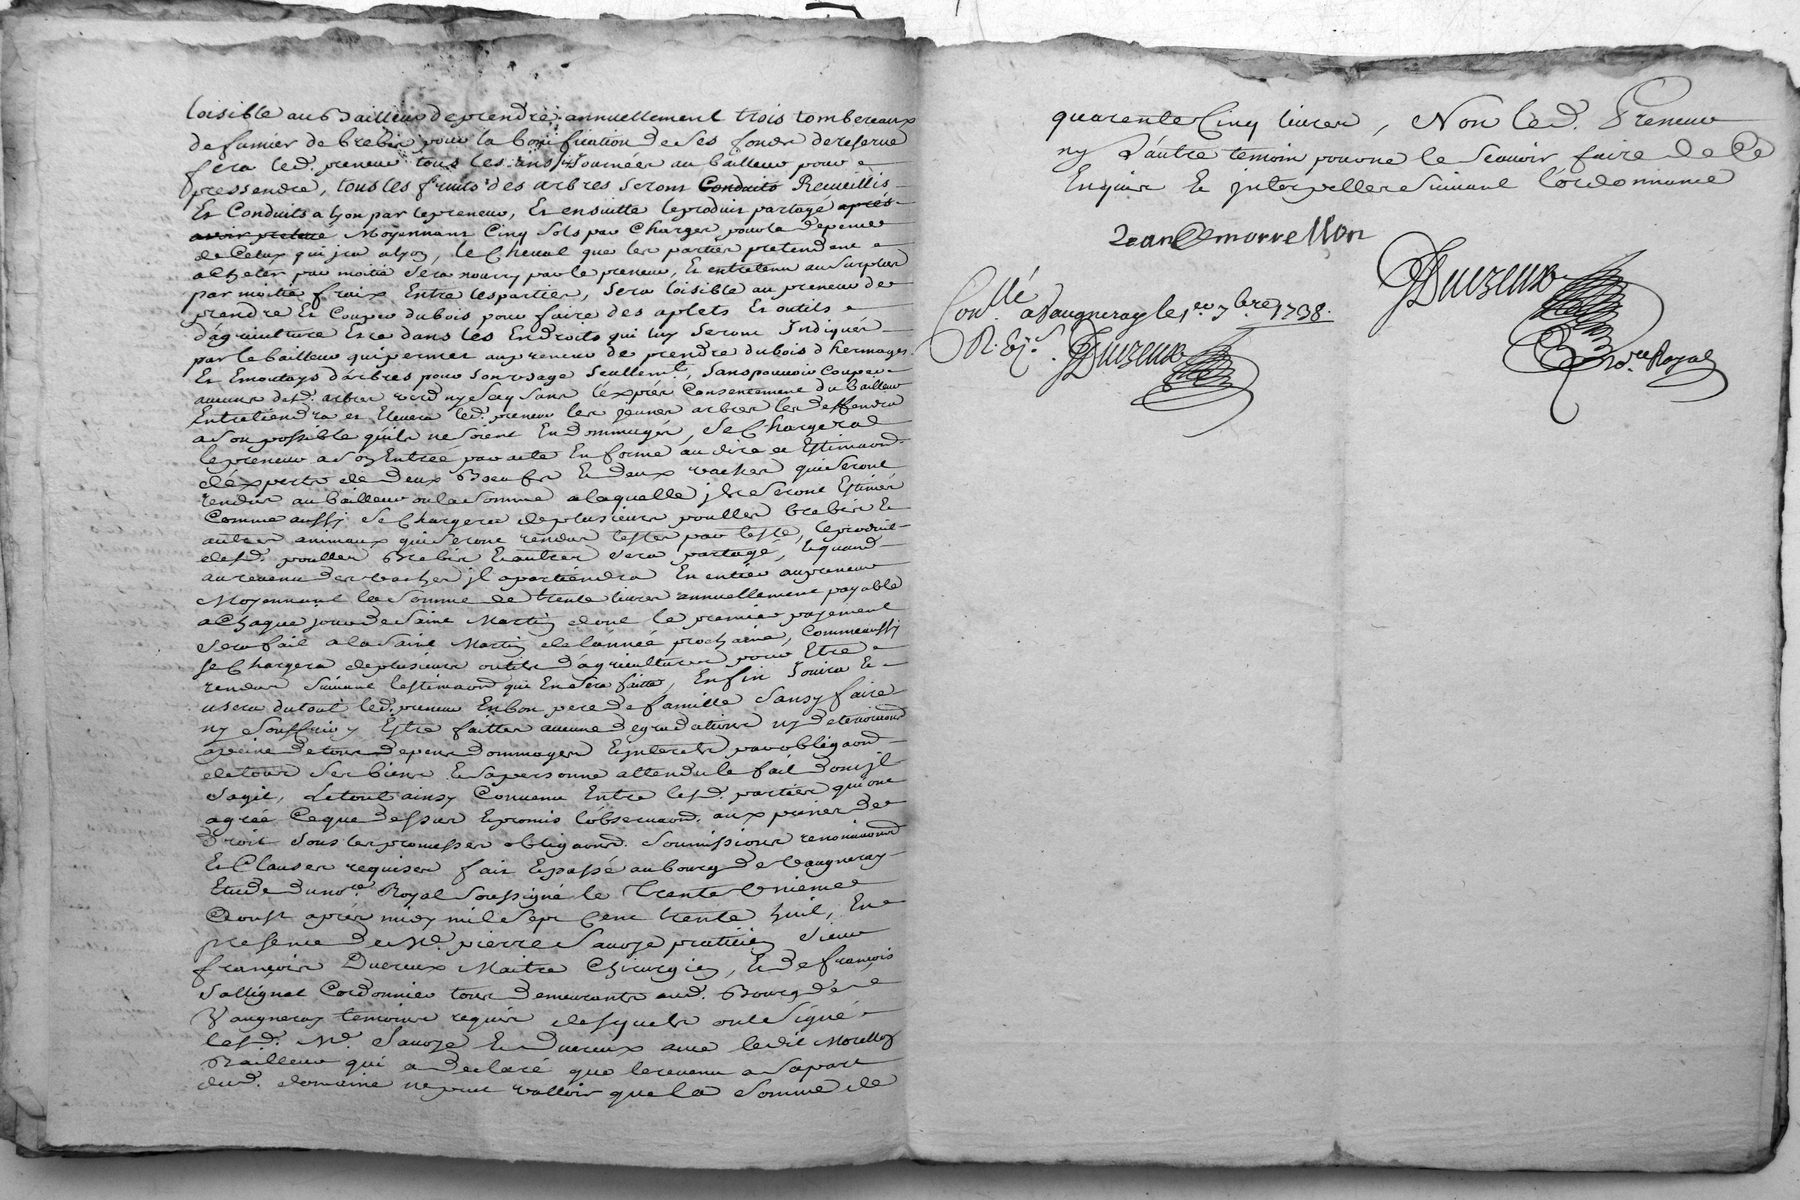 loisible au Bailleur de prendre annuellement trois tombereaux
de fumier de brebis pour la bonification de ses fonds de reserve
fera led. preneur tous les ans journées au bailleur pour
pressendre, tous les fruits des arbres seront Conduits Recueillis
Et Conduits a lyon par le preneur, Et ensuitte le produit partagé aprés
avoir prelevé Moyennant Cinq sols par Charges pour la depence
de Celuy qui jra a lyon, le Cheval que les parties pretendent
achepter par moitié sera nourry par le preneur, Et entretenu au surplus
par moitié fraix Entre les parties, sera loisible au preneur de
prendre Et Couper du bois pour faire des aplets Et outils
d'agriculture Et ce dans les Endroits qui luy seront Indiqués
par le bailleur qui permet au preneur de prendre du bois d'hermages
Et Emoutays d'arbres pour son usage seullemt., sans pouvoir Couper
aucuns desd. arbres verd ny secq sans l'éxprés Consentement du bailleur
Entretiendra et Elevera led. preneur les jeunes arbres les deffendra
a son possible qu'ils ne soient Endommagés, se Chargera
le preneur a son Entrée par acte En forme au dire et Estimaon.
d'éxperts de deux Boeufs Et deux vaches qui seront
rendus au bailleur ou la somme a laquelle jls seront Estimés
Comme aussy se Chargera de plusieurs poulles brebis Et
autres animaux qui seront rendus teste par teste, le produit
desd. poulles Brebis Et autres sera partagé, Et quand
au revenu des vaches jl apartiendra En entier au preneur
Moyennant la somme de trente livres annuellement payable
a Chaque jour de Saint Martin dont le premier payement
sera fait a la saint Martin de l'année prochaine, Comme aussy
se Chargera de plusieurs outils d'agricultures pour Etre
rendus suivant l'estimaon. qui En sera faitte, Enfin Jouira Et
usera du tout led. preneur En bon pere de famille sans y faire
ny souffrir y Estre faittes aucune degradations ny deterioraons.
a peine de tous depens dommages Et jnterets par obligaon.
de tous ses biens Et sa personne attendu le fait dont jl
s'agit, Le tout ainsy Convenu Entre lesd. parties qui ont
agréé Ce que dessus Et promis l'observaon. aux peines de
droit sous les promesses obligaons. soumissions renonciaons.
Et Clauses requises fait Et passé au bourg de Vaugneray
Etude du nore. Royal soussigné le Trente Vnieme
d'Aoust aprés midy mil sept Cent trente huit, En
presence de Me. pierre Sauvze praticien sieur
françois Ducreux Maitre Chirurgien, Et de françois
Sallignat Cordonnier tous demeurants aud. Bourg de
Vaugneray temoins requis desquels ont signé
lesd. Me. Sauvze Et ducreux avec ledit Morellon
Bailleur qui a declaré que le revenu a sa part
dud. domaine ne peut valloir que la somme de
quarente Cinq livres, Non led. Preneur
ny L'autre temoin pour ne le scavoir faire de Ce
Enquis Et jnterpellés suivant l'ordonnance
Jean morrellon
Conllé. a Vaugneray le 1er. 7bre. 1738.
Nore. Royal